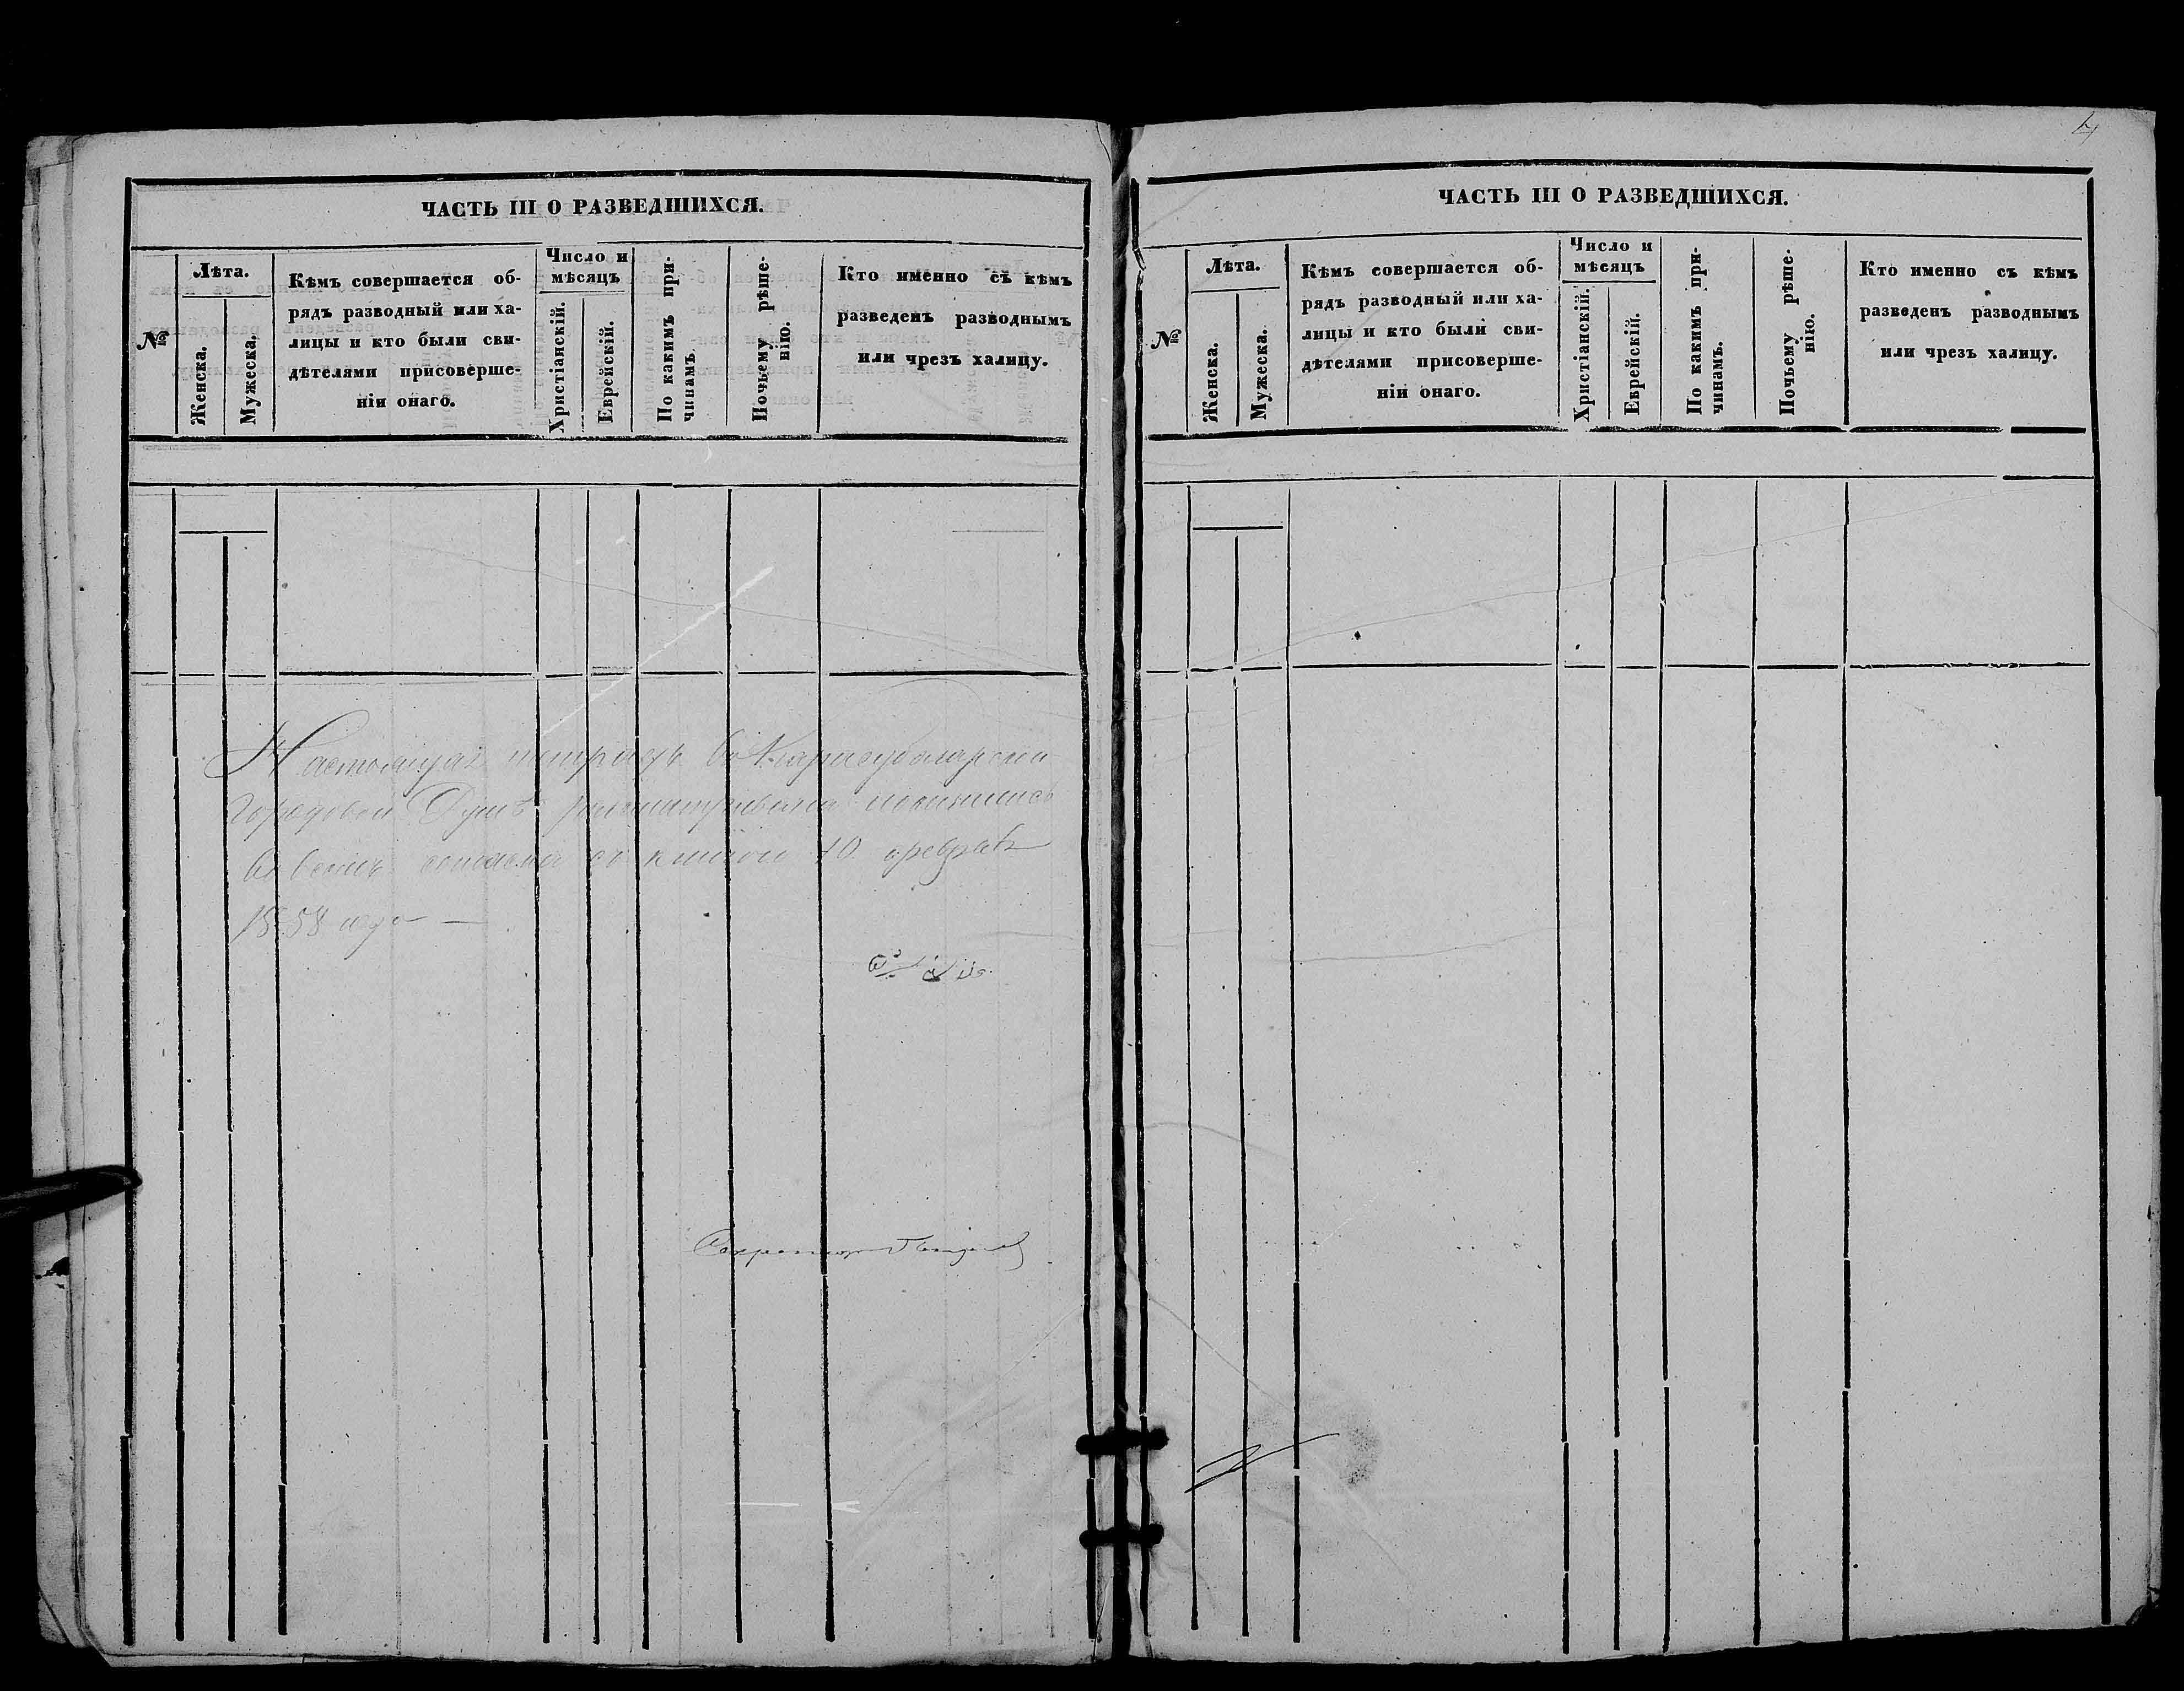 ЧАСТЬ III О РАЗВЕДШИХСЯ.
№
Лѣта.
Женска.
Мужеска.
Кѣмъ совершается об-
рядъ разводный или ха-
лицы и кто были сви-
дѣтелями присоверше-
ніи онаго.
Число и
мѣсяцъ
Христіанскій.
Еврейскій.
По какимъ при-
чинамъ.
Почьему рѣше-
нію.
Кто именно съ кѣмъ
разведенъ разводнымъ
или чрезъ халицу.
Настоящая во Карасубазарской
Городовой Думѣ
10 февраля
1858 года
Секретарь
4
ЧАСТЬ III О РАЗВЕДШИХСЯ.
№
Лѣта.
Женска.
Мужеска.
Кѣмъ совершается об-
рядъ разводный или ха-
лицы и кто были сви-
дѣтелями присоверше-
ніи онаго.
Число и
мѣсяцъ
Христіанскій.
Еврейскій.
По какимъ при-
чинамъ.
Почьему рѣше-
нію.
Кто именно съ кѣмъ
разведенъ разводнымъ
или чрезъ халицу.